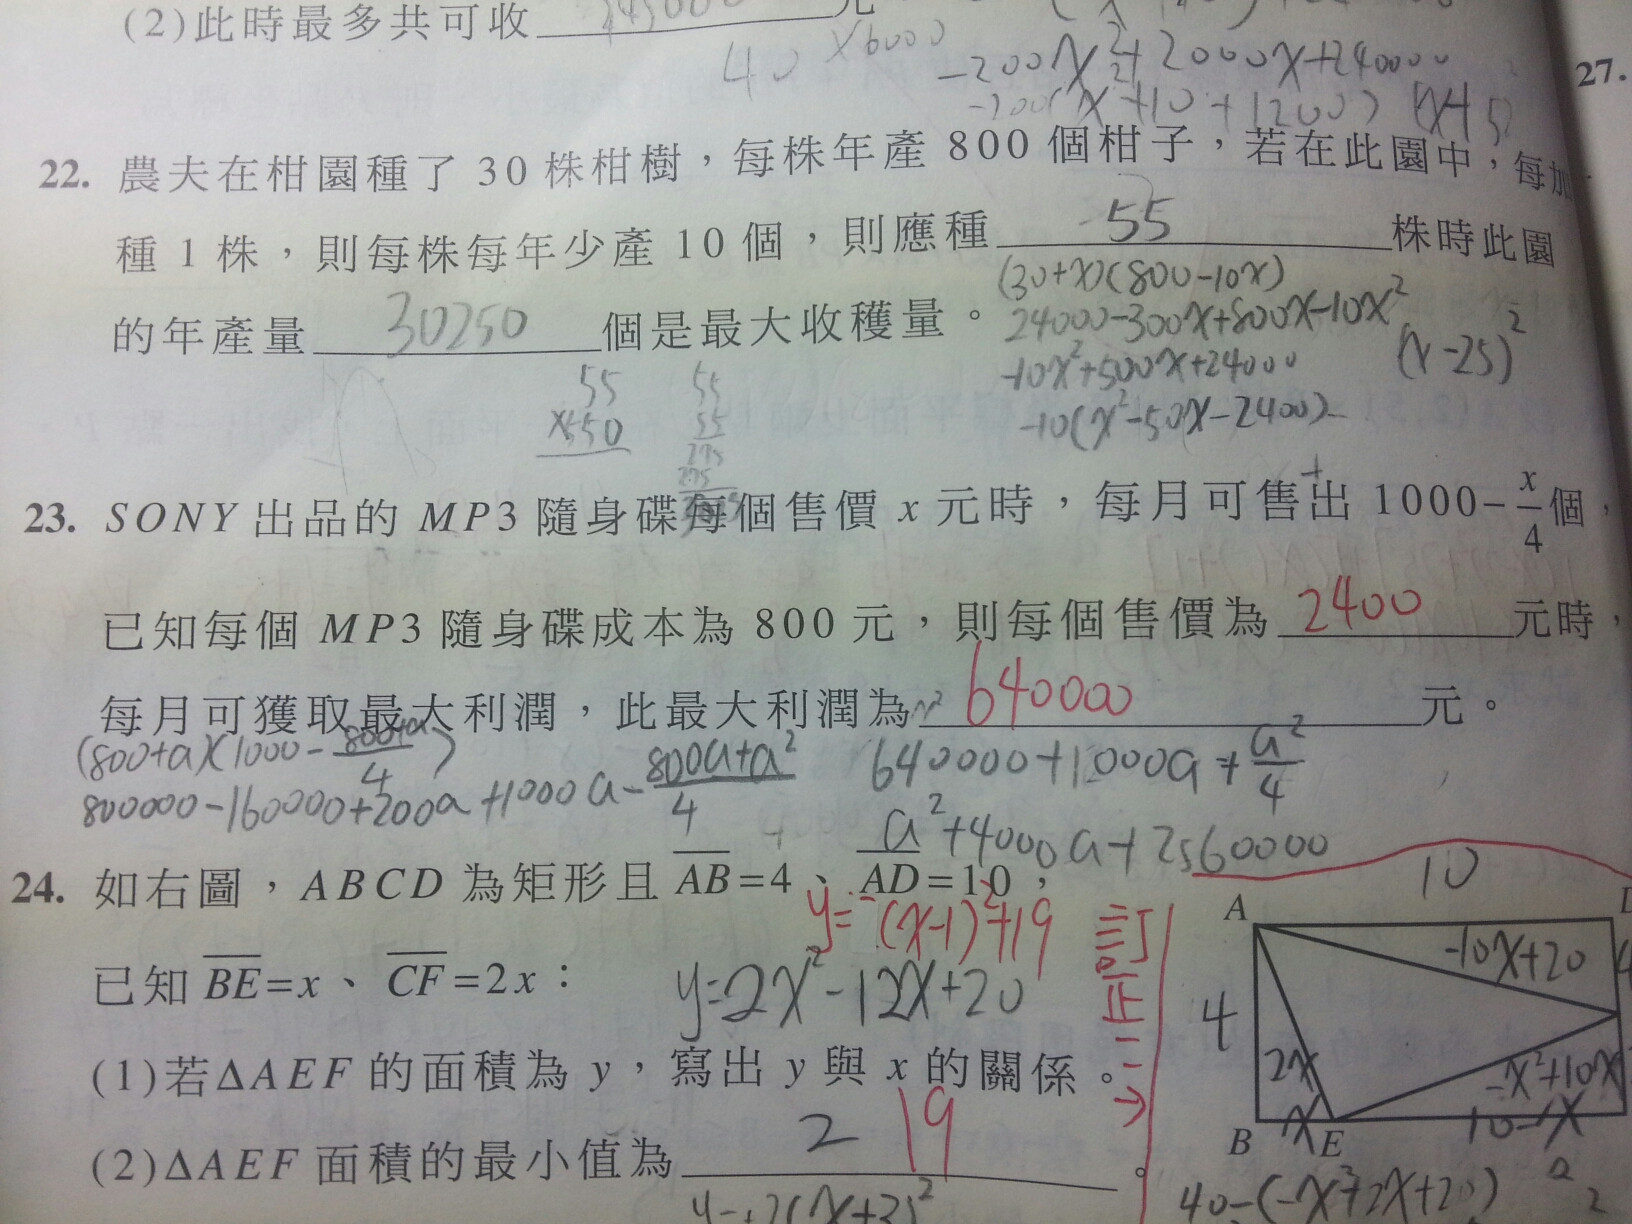 (2)此時最多共可收 245000 元
40 x6000
-200x²+2000x+240000
27.
22. 農夫在柑園種了 30 株柑樹，每株年產 800 個柑子，若在此園中，每加
種 1 株，則每株每年少產 10 個，則應種 55 株時此園
(30+x)(800-10x)
的年產量 30250 個是最大收穫量。
24000-300x+800x-10x²
(x-25)²
-10x²+500x+24000
-10(x²-50x-2400)
55
x550
55
55
275
275
23. SONY 出品的 MP3 隨身碟每個售價 x 元時，每月可售出 1000-x/4 個，
已知每個 MP3 隨身碟成本為 800 元，則每個售價為 2400 元時，
每月可獲取最大利潤，此最大利潤為 640000 元。
(800+a)(1000-(800+a)/4)
640000+1000a+a²/4
800000-160000+200a+1000a-(800a+a²)/4
a²+4000a+2560000
24. 如右圖，ABCD 為矩形且 AB=4、AD=10，
y=-(x-1)²+19
已知 BE=x、CF=2x：
y=2x²-12x+20
(1)若ΔAEF 的面積為 y，寫出 y 與 x 的關係。
(2)ΔAEF 面積的最小值為 2 19 。
訂正二→
10
A
D
-10x+20
4
2x
-x²+10x
B x E 10-x
40-(-x²+2x+20)